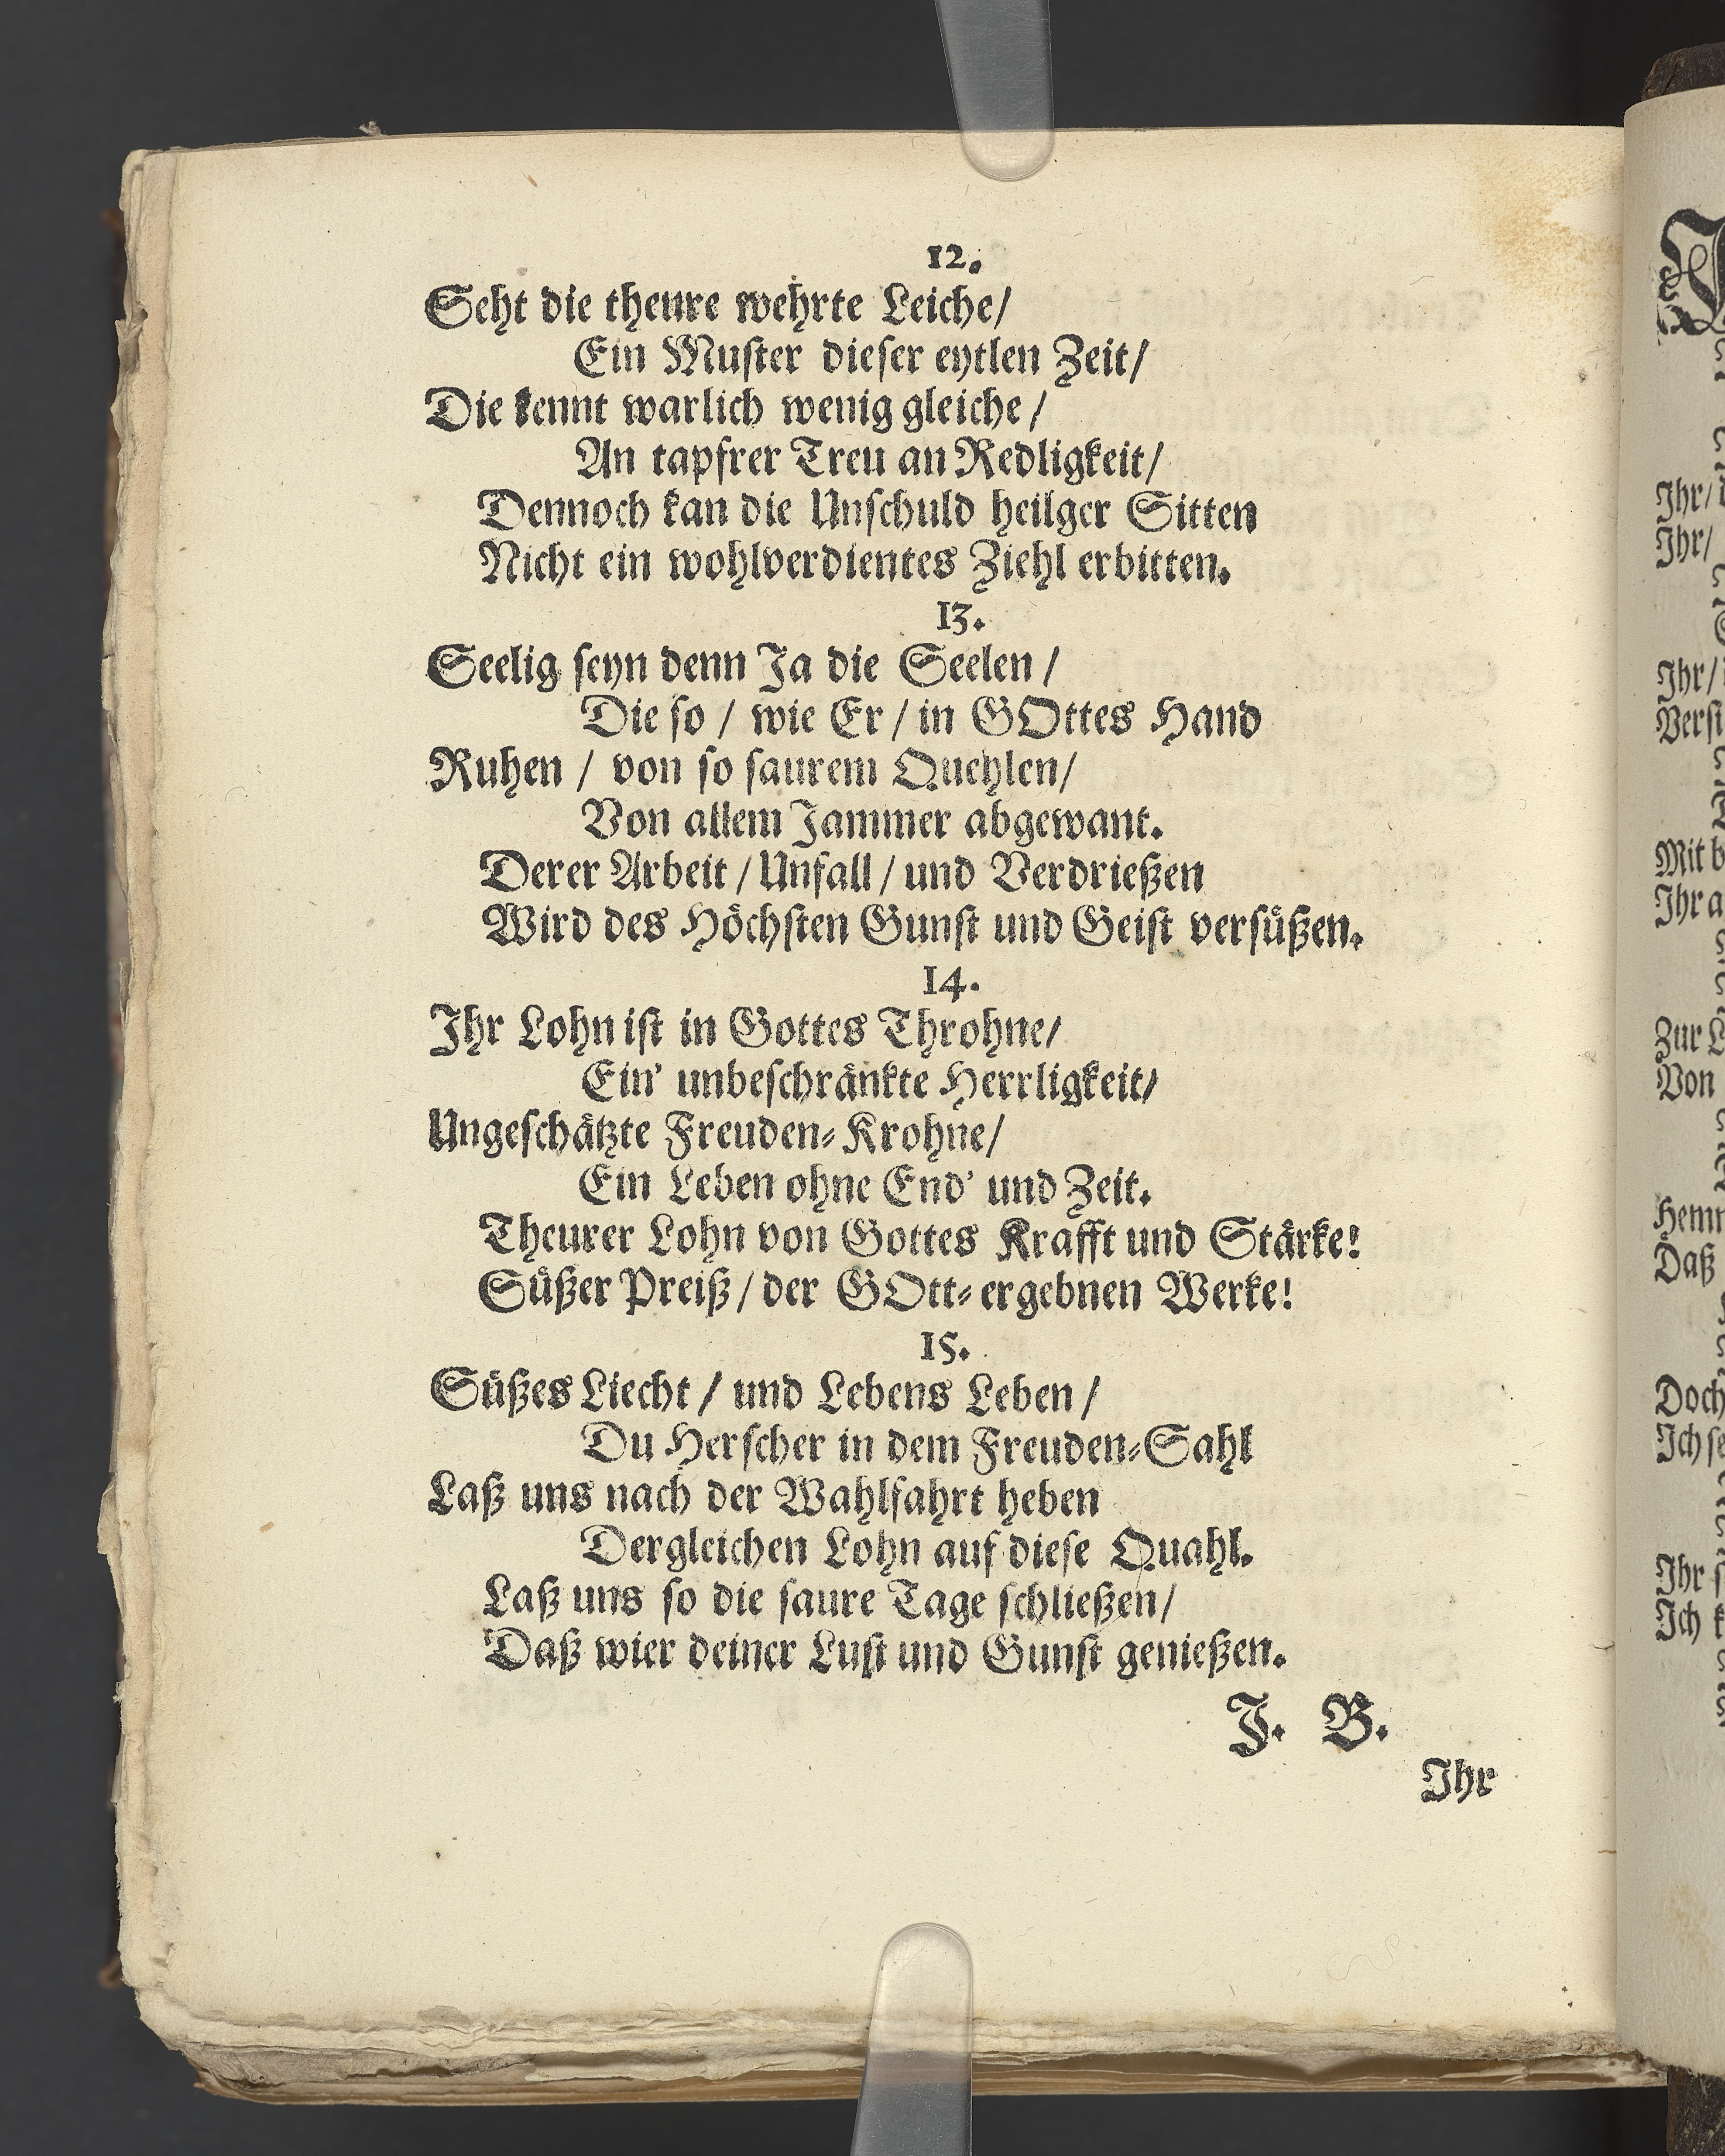 12.
Seht die theure wehrte Leiche/
Ein Muster dieser eytlen Zeit/
Die kennt warlich wenig gleiche/
An tapfrer Treu an Redligkeit/
Dennoch kan die Unschuld heilger Sitten
Nicht ein wohlverdientes Ziehl erbitten.
13.
Seelig seyn denn Ja die Seelen/
Die so / wie Er / in GOttes Hand
Ruhen / von so saurem Quehlen/
Von allem Jammer abgewant.
Derer Arbeit / Unfall / und Verdrießen
Wird des Höchsten Gunst und Geist versüßen.
14.
Ihr Lohn ist in Gottes Throhne/
Ein' unbeschränkte Herrligkeit/
Ungeschätzte Freuden-Krohne/
Ein Leben ohne End' und Zeit.
Theurer Lohn von Gottes Krafft und Stärke!
Süßer Preiß / der GOtt-ergebnen Werke!
15.
Süßes Liecht / und Lebens Leben /
Du Herscher in dem Freuden-Sahl
Laß uns nach der Wahlfahrt heben
Dergleichen Lohn auf diese Quahl.
Laß uns so die saure Tage schließen/
Daß wier deiner Lust und Gunst genießen.
J. B.
Ihr
Ihr/
Ihr/
Ihr/
Mit
Ihr
Zur
Von
Daß
Doch
Ihr
Ich